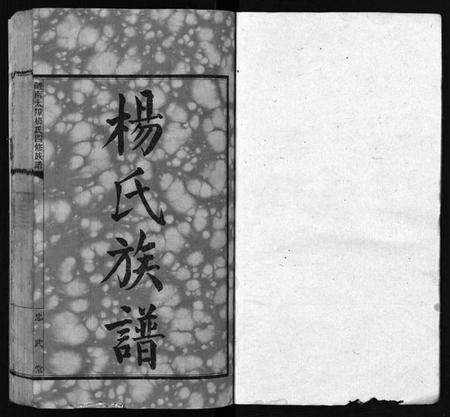 楊氏族譜
醴南大障楊氏四修族譜
忠武堂